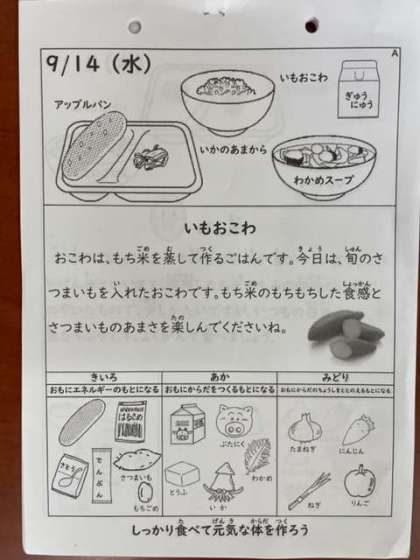 9/14（水）
A
いもおこわ
ぎゅう
にゅう
アップルパン
いかのあまから
わかめスープ
いもおこわ
おこわは、もち米を蒸して作るごはんです。今日は、旬のさ
つまいもを入れたおこわです。もち米のもちもちした食感と
さつまいものあまさを楽しんでくださいね。
きいろ
おもにエネルギーのもとになる
あか
おもにからだをつくるもとになる
みどり
おもにからだのちょうしをととのえるもとになる
はるさめ
さとう
でんぷん
さつまいも
もちごめ
ぶたにく
わかめ
とうふ
いか
たまねぎ
にんじん
ねぎ
りんご
しっかり食べて元気な体を作ろう